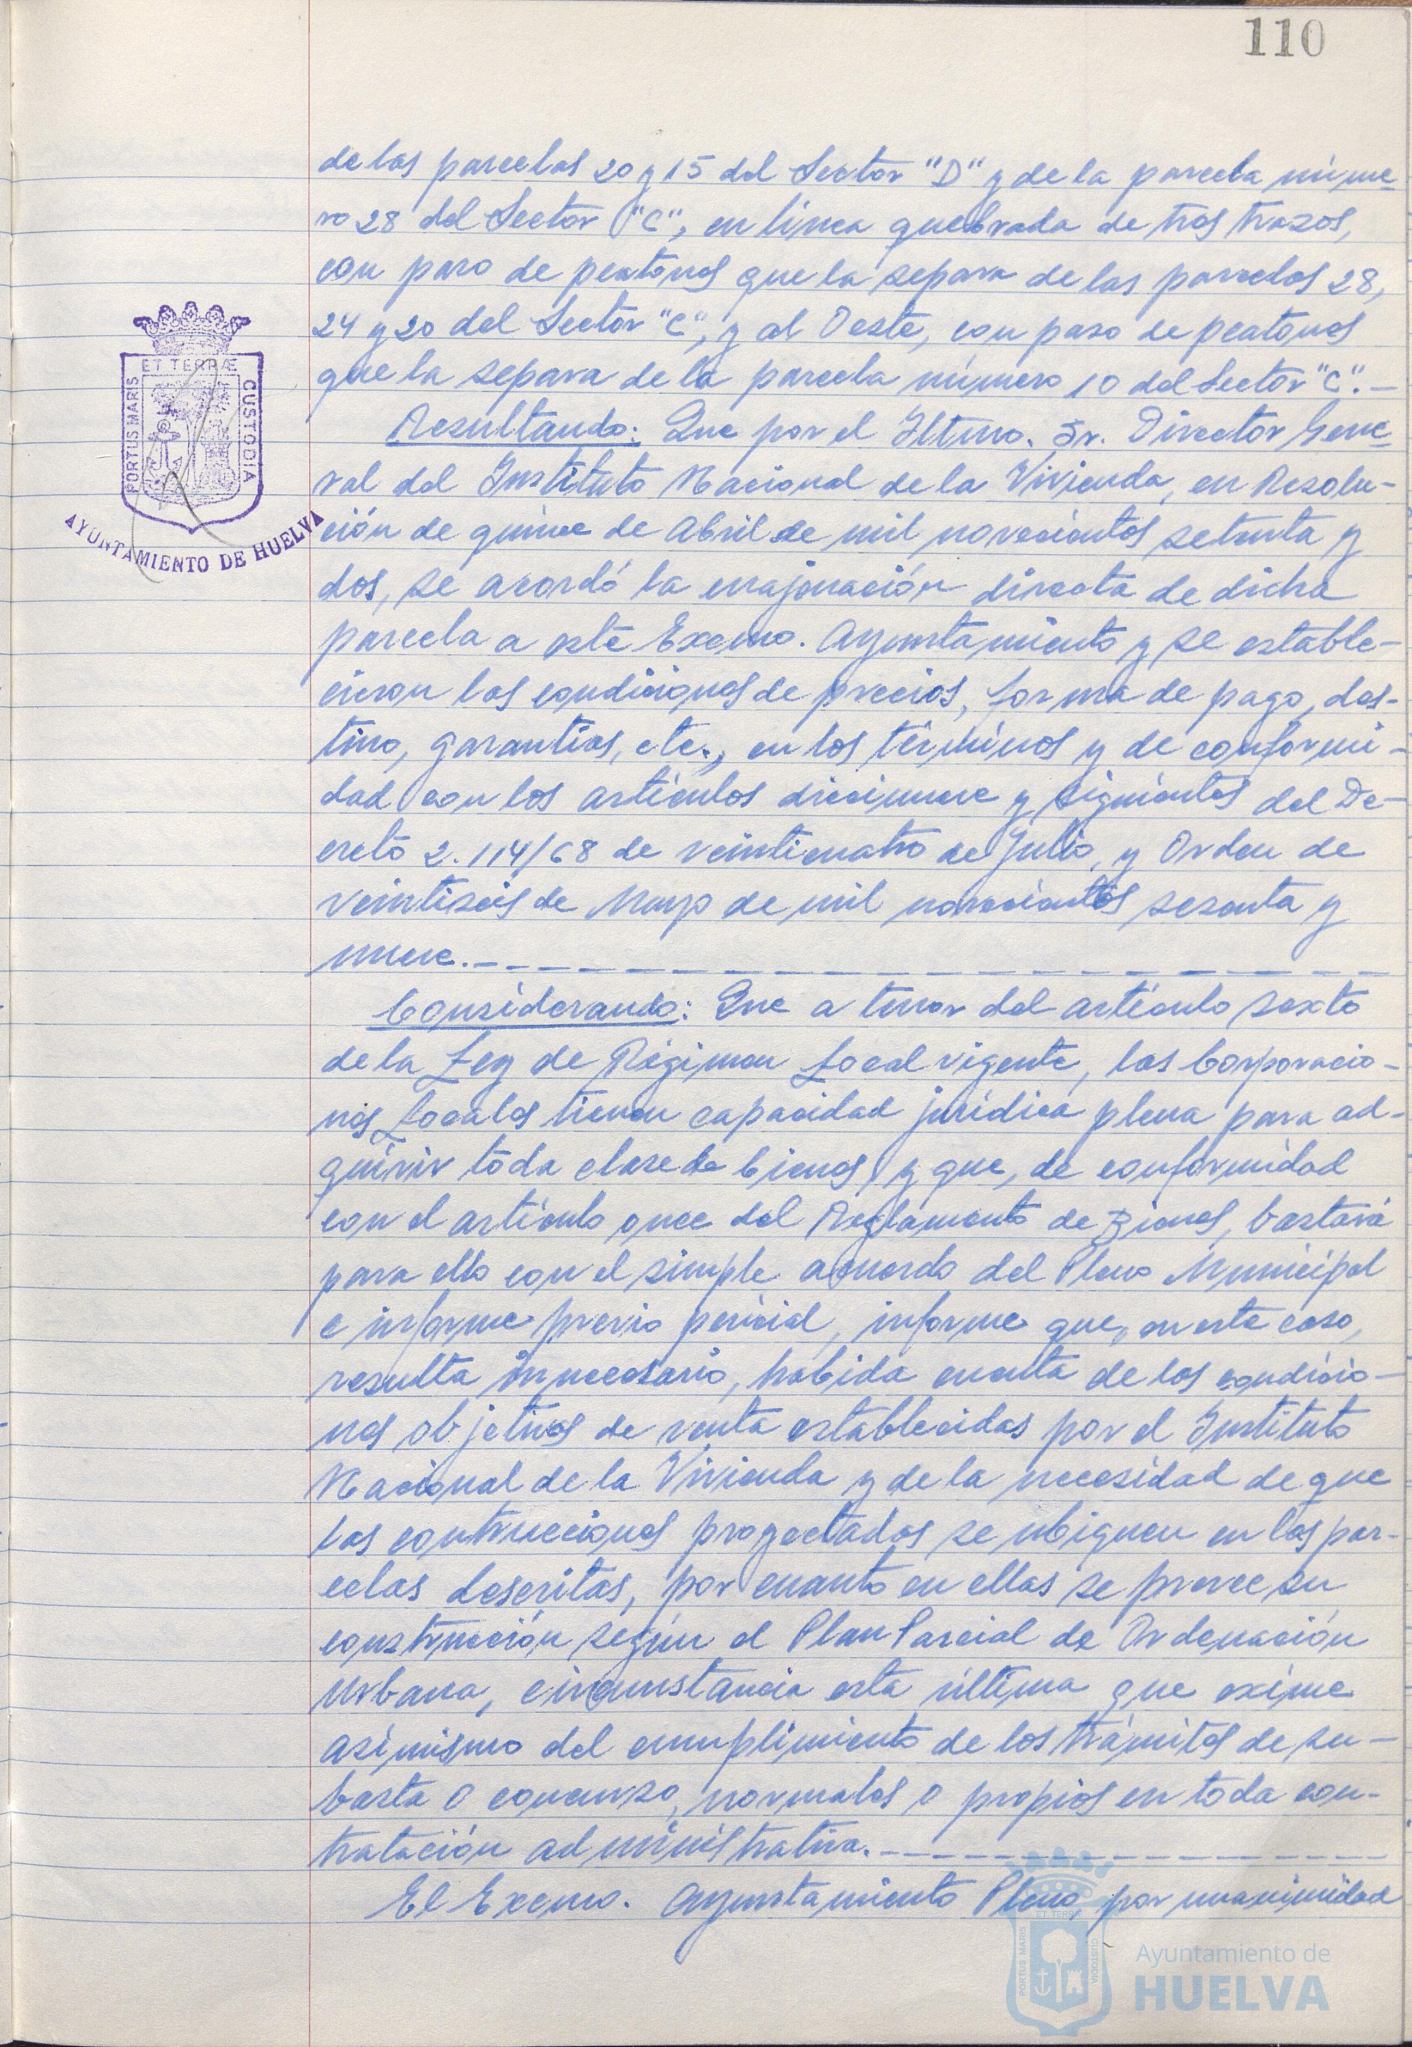 110
de las parcelas 20 y 15 del Sector "D" y de la parcela núme-
ro 28 del Sector "C", en línea quebrada de tres trazos,
con paso de peatones que la separa de las parcelas 28,
24 y 20 del Sector "C", y al Oeste, con paso de peatones
que la separa de la parcela número 10 del Sector "C".-
Resultando: Que por el Iltmo. Sr. Director Gene-
ral del Instituto Nacional de la Vivienda, en Resolu-
ción de quince de Abril de mil novecientos setenta y
dos, se acordó la enajenación directa de dicha
parcela a este Excmo. Ayuntamiento y se estable-
cieron las condiciones de precios, forma de pago, des-
tino, garantías, etc., en los términos y de conformi-
dad con los artículos diecinueve y siguientes del De-
creto 2.114/68 de veinticuatro de Julio, y Orden de
veintiseis de Mayo de mil novecientos sesenta y
nueve.-
Considerando: Que a tenor del artículo sexto
de la Ley de Régimen Local vigente, las Corporacio-
nes Locales tienen capacidad jurídica plena para ad-
quirir toda clase de bienes, y que, de conformidad
con el artículo once del Reglamento de Bienes, bastará
para ello con el simple acuerdo del Pleno Municipal
e informe previo pericial, informe que, en este caso,
resulta innecesario, habida cuenta de las condicio-
nes objetivas de venta establecidas por el Instituto
Nacional de la Vivienda y de la necesidad de que
las contrucciones proyectadas se ubiquen en las par-
celas descritas, por cuanto en ellas se prevee su
construcción según el Plan Parcial de Ordenación
Urbana, circunstancia esta última que exime
asimismo del cumplimiento de los trámites de su-
basta o concurso, normales o propios en toda con-
tratación administrativa.-
El Excmo. Ayuntamiento Pleno, por unanimidad
PORTUS MARIS
ET TERRÆ
CUSTODIA
AYUNTAMIENTO DE HUELVA
PORTUS MARIS
ET TERRÆ
CUSTODIA
Ayuntamiento de
HUELVA